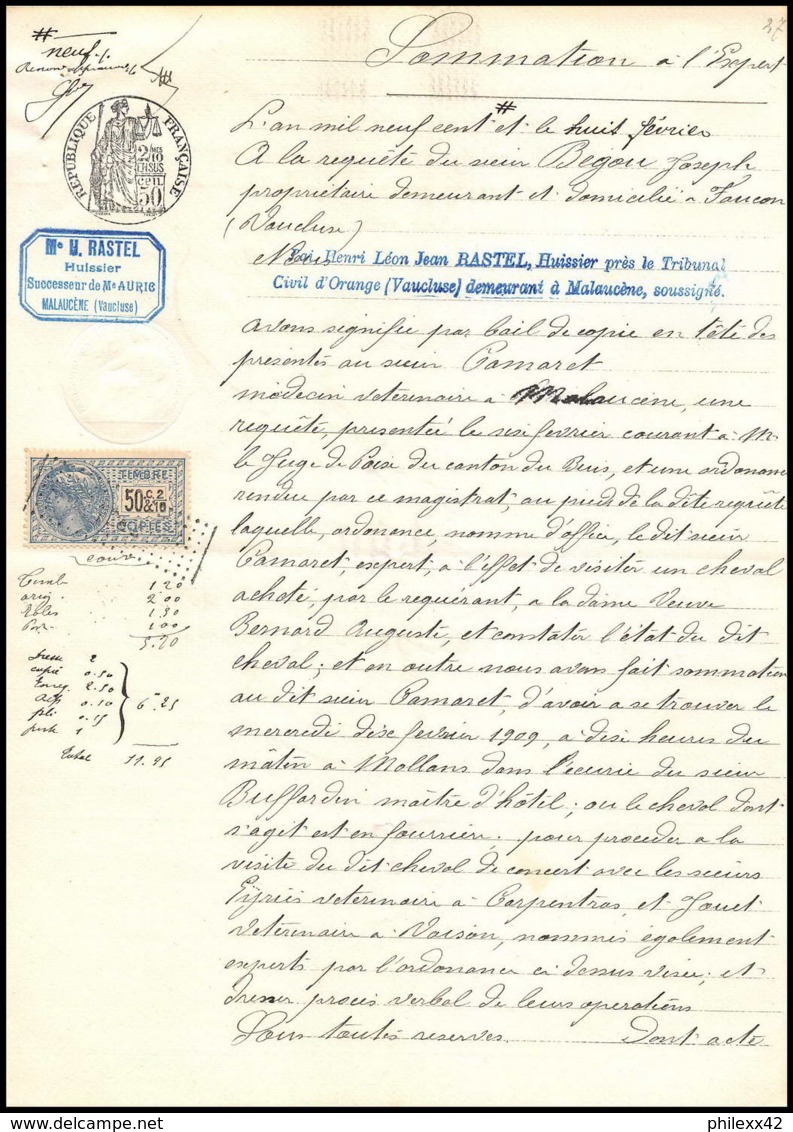 37
#
neuf
#
Sommation à l'Expert
#
RÉPUBLIQUE FRANÇAISE
2/10
EN SUS
50
L'an mil neuf cent et le huit février
A la requête du sieur Begou Joseph
propriétaire demeurant et domicilié à Faucon
(Vaucluse)
Me H. RASTEL
Huissier
Successeur de Me AURIC
MALAUCÈNE (Vaucluse)
Nous Henri Léon Jean RASTEL, Huissier près le Tribunal
Civil d'Orange (Vaucluse) demeurant à Malaucène, soussigné.
avons signifié par bail de copie en tête des
présentes au sieur Camaret
médecin vétérinaire à Malaucène, une
requête, présentée le six fevrier courant à M.
le Juge de Paix du canton du Buis, et une ordonance
rendue par ce magistrat, au pied de la dite requête
laquelle, ordonance, nomme d'office, le dit sieur
Camaret, expert, à l'effet de visiter un cheval
acheté, par le requérant, a la dame Veuve
Bernard Auguste, et constater l'état du dit
cheval; et en outre nous avons fait sommation
au dit sieur Camaret, d'avoir a se trouver le
mercredi dix fevrier 1909, a dix heures du
matin à Mollans dans l'écurie du sieur
Buffardin maître d'hôtel; ou le cheval dont
s'agit est en fourrière; pour proceder a la
visite du dit cheval de concert avec les sieurs
Eyriès veterinaire à Carpentras, et Jouet
veterinaire à Vaison, nommés également
experts par l'ordonance ci dessus visée; et
dresser procès verbal de leurs operations
Sous toutes reserves. Dont acte
TIMBRE
50 C. 2
&10
COPIES
1.20
orig. 2.00
1.50
1.00
5.70
2
copie 0.50
Enreg. 2.50
0.10
pli 0.15
1
6.25
Total 11.95
philexx42